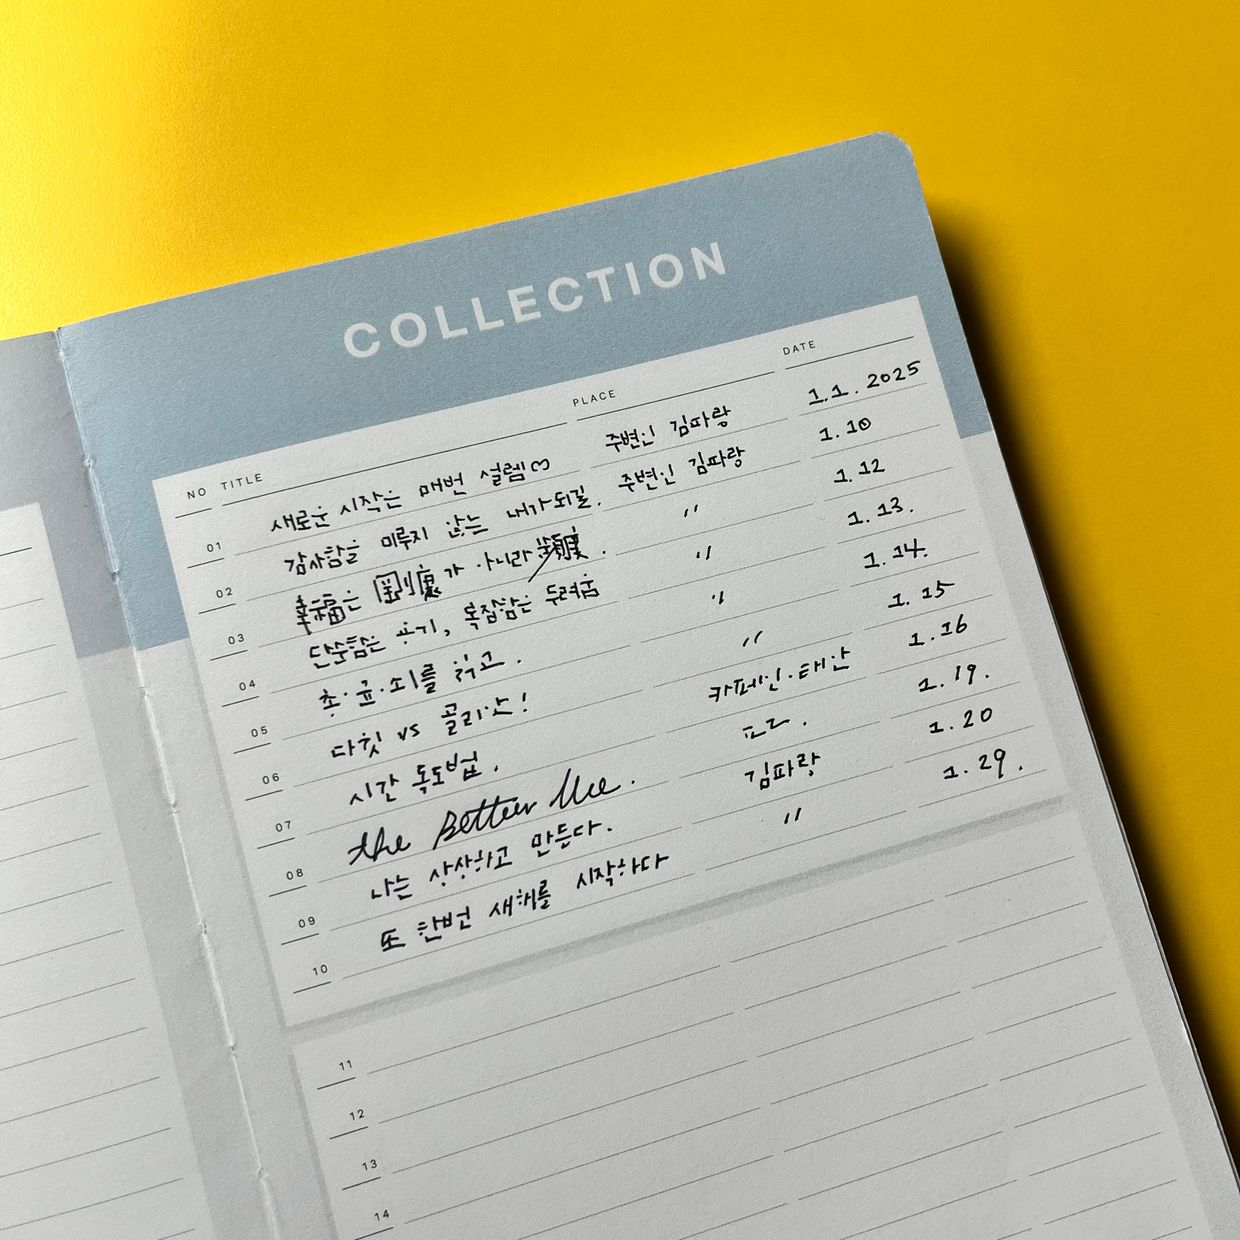 COLLECTION
NO TITLE PLACE DATE
01 새로운 시작은 매번 설렘♡ 주변인 김파랑 1.1.2025
02 감사함을 미루지 않는 내가 되길. 주변인 김파랑 1.10
03 幸福은 가 아니라 . 〃 1.12
04 단순함은 용기, 복잡함은 두려움 〃 1.13.
05 총·균·쇠를 읽고. 〃 1.14.
06 다윗 vs 골리앗! 〃 1.15
07 시간 독도법. 카페인·태안 1.16
08 the Better 교고. 1.19.
09 나는 상상하고 만든다. 김파랑 1.20
10 또 한번 새해를 시작하다 〃 1.29.
11
12
13
14